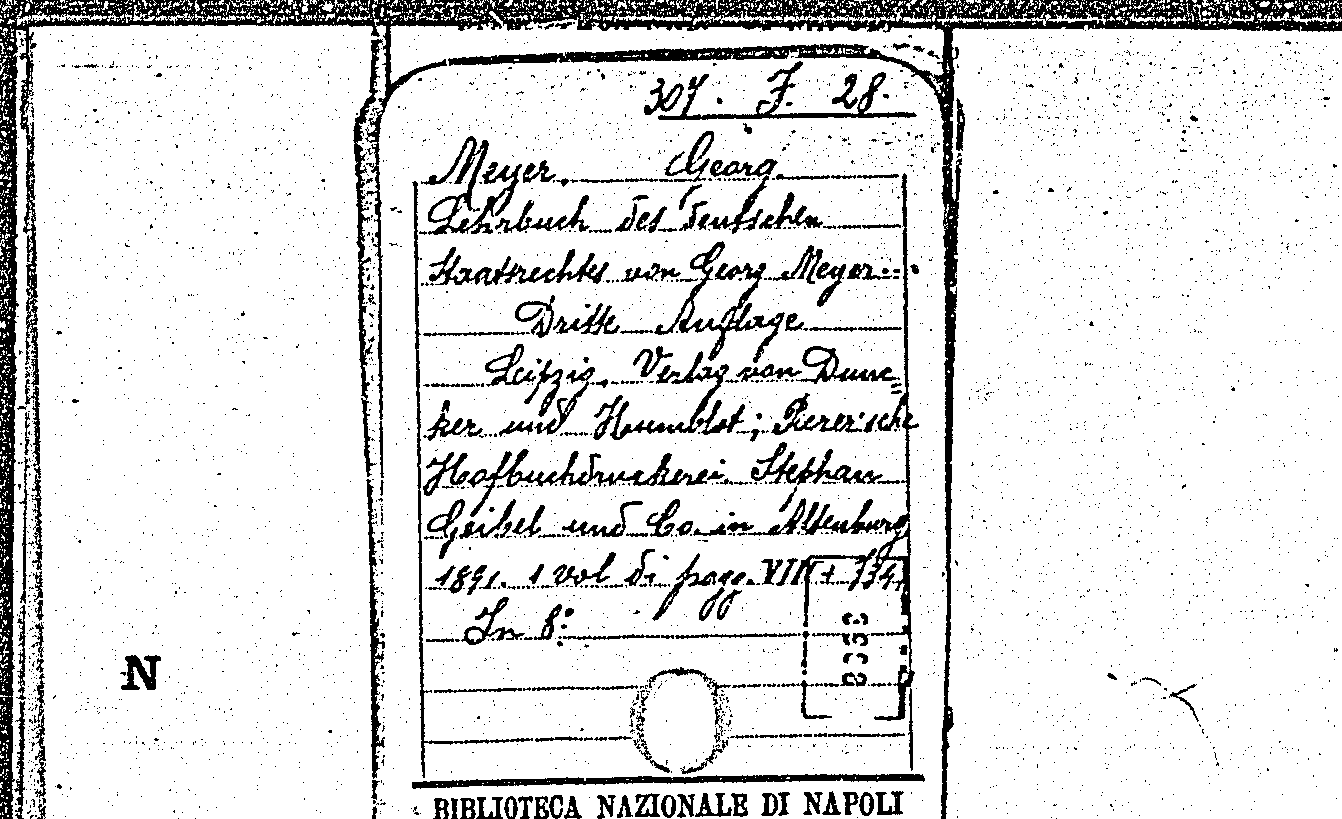 307. F. 28.
Meyer, Georg.
Lehrbuch des deutschen
Staatsrechtes von Georg Meyer...
Dritte Auflage
Leipzig. Verlag von Dunc=
ker und Humblot; Pierer'sche
Hofbuchdruckerei. Stephan
Geibel und Co. in Altenburg
1891. 1 vol di pagg. VIII + 734.
In 8º
N
BIBLIOTECA NAZIONALE DI NAPOLI